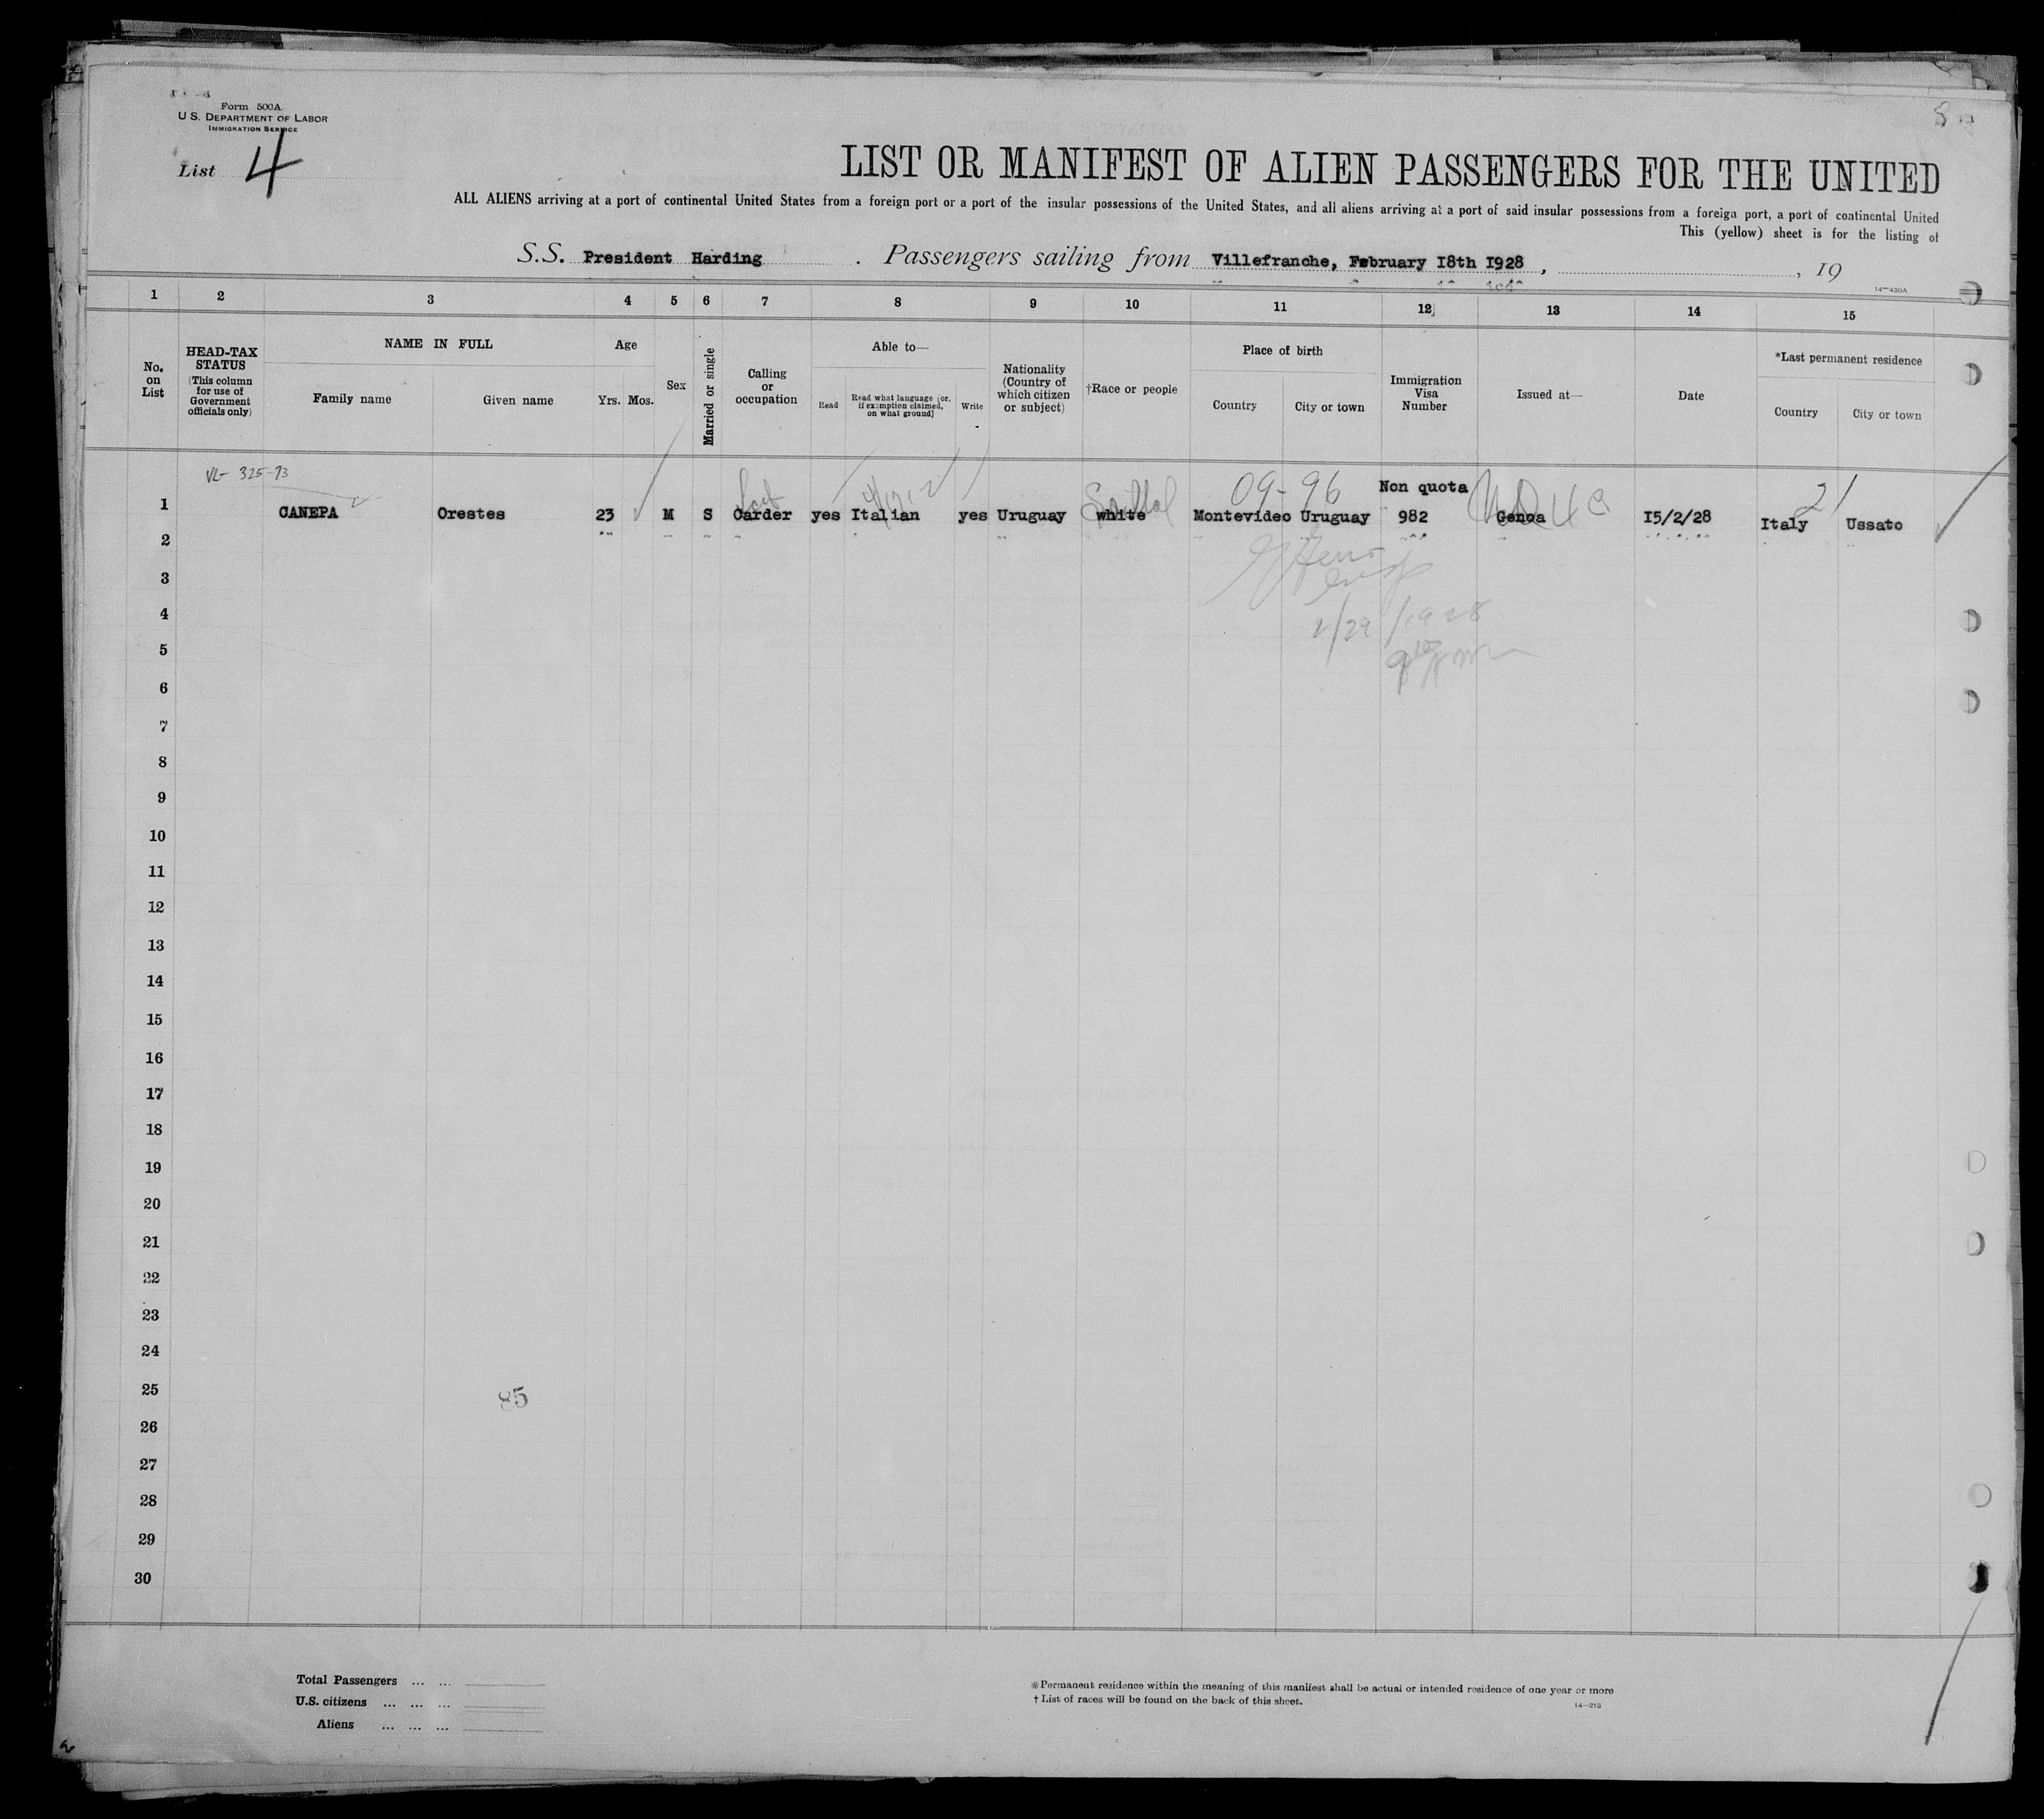 Form 500A
U.S. DEPARTMENT OF LABOR
IMMIGRATION SERVICE
List 4
LIST OR MANIFEST OF ALIEN PASSENGERS FOR THE UNITED
ALL ALIENS arriving at a port of continental United States from a foreign port or a port of the insular possessions of the United States, and all aliens arriving at a port of said insular possessions from a foreign port, a port of continental United
This (yellow) sheet is for the listing of
S.S. President Harding . Passengers sailing from Villefranche, February I8th I928 , , 19
14—430A
1 2 3 4 5 6 7 8 9 10 11 12 13 14 15
No. on List
HEAD-TAX STATUS
(This column for use of Government officials only)
NAME IN FULL
Family name
Given name
Age
Yrs. Mos.
Sex
Married or single
Calling or occupation
Able to—
Read
Read what language [or, if exemption claimed, on what ground]
Write
Nationality (Country of which citizen or subject)
†Race or people
Place of birth
Country
City or town
Immigration Visa Number
Issued at—
Date
*Last permanent residence
Country
City or town
325-93
09-96
Non quota
21
1 CANEPA Orestes 23 M S Carder yes Italian yes Uruguay white Montevideo Uruguay 982 Genoa I5/2/28 Italy Ussato
2
3
4
2/29/1928
5
6
7
8
9
10
11
12
13
14
15
16
17
18
19
20
21
22
23
24
25
85
26
27
28
29
30
Total Passengers ... ...
U.S. citizens ... ... ...
Aliens ... ... ...
*Permanent residence within the meaning of this manifest shall be actual or intended residence of one year or more
† List of races will be found on the back of this sheet.
14—213